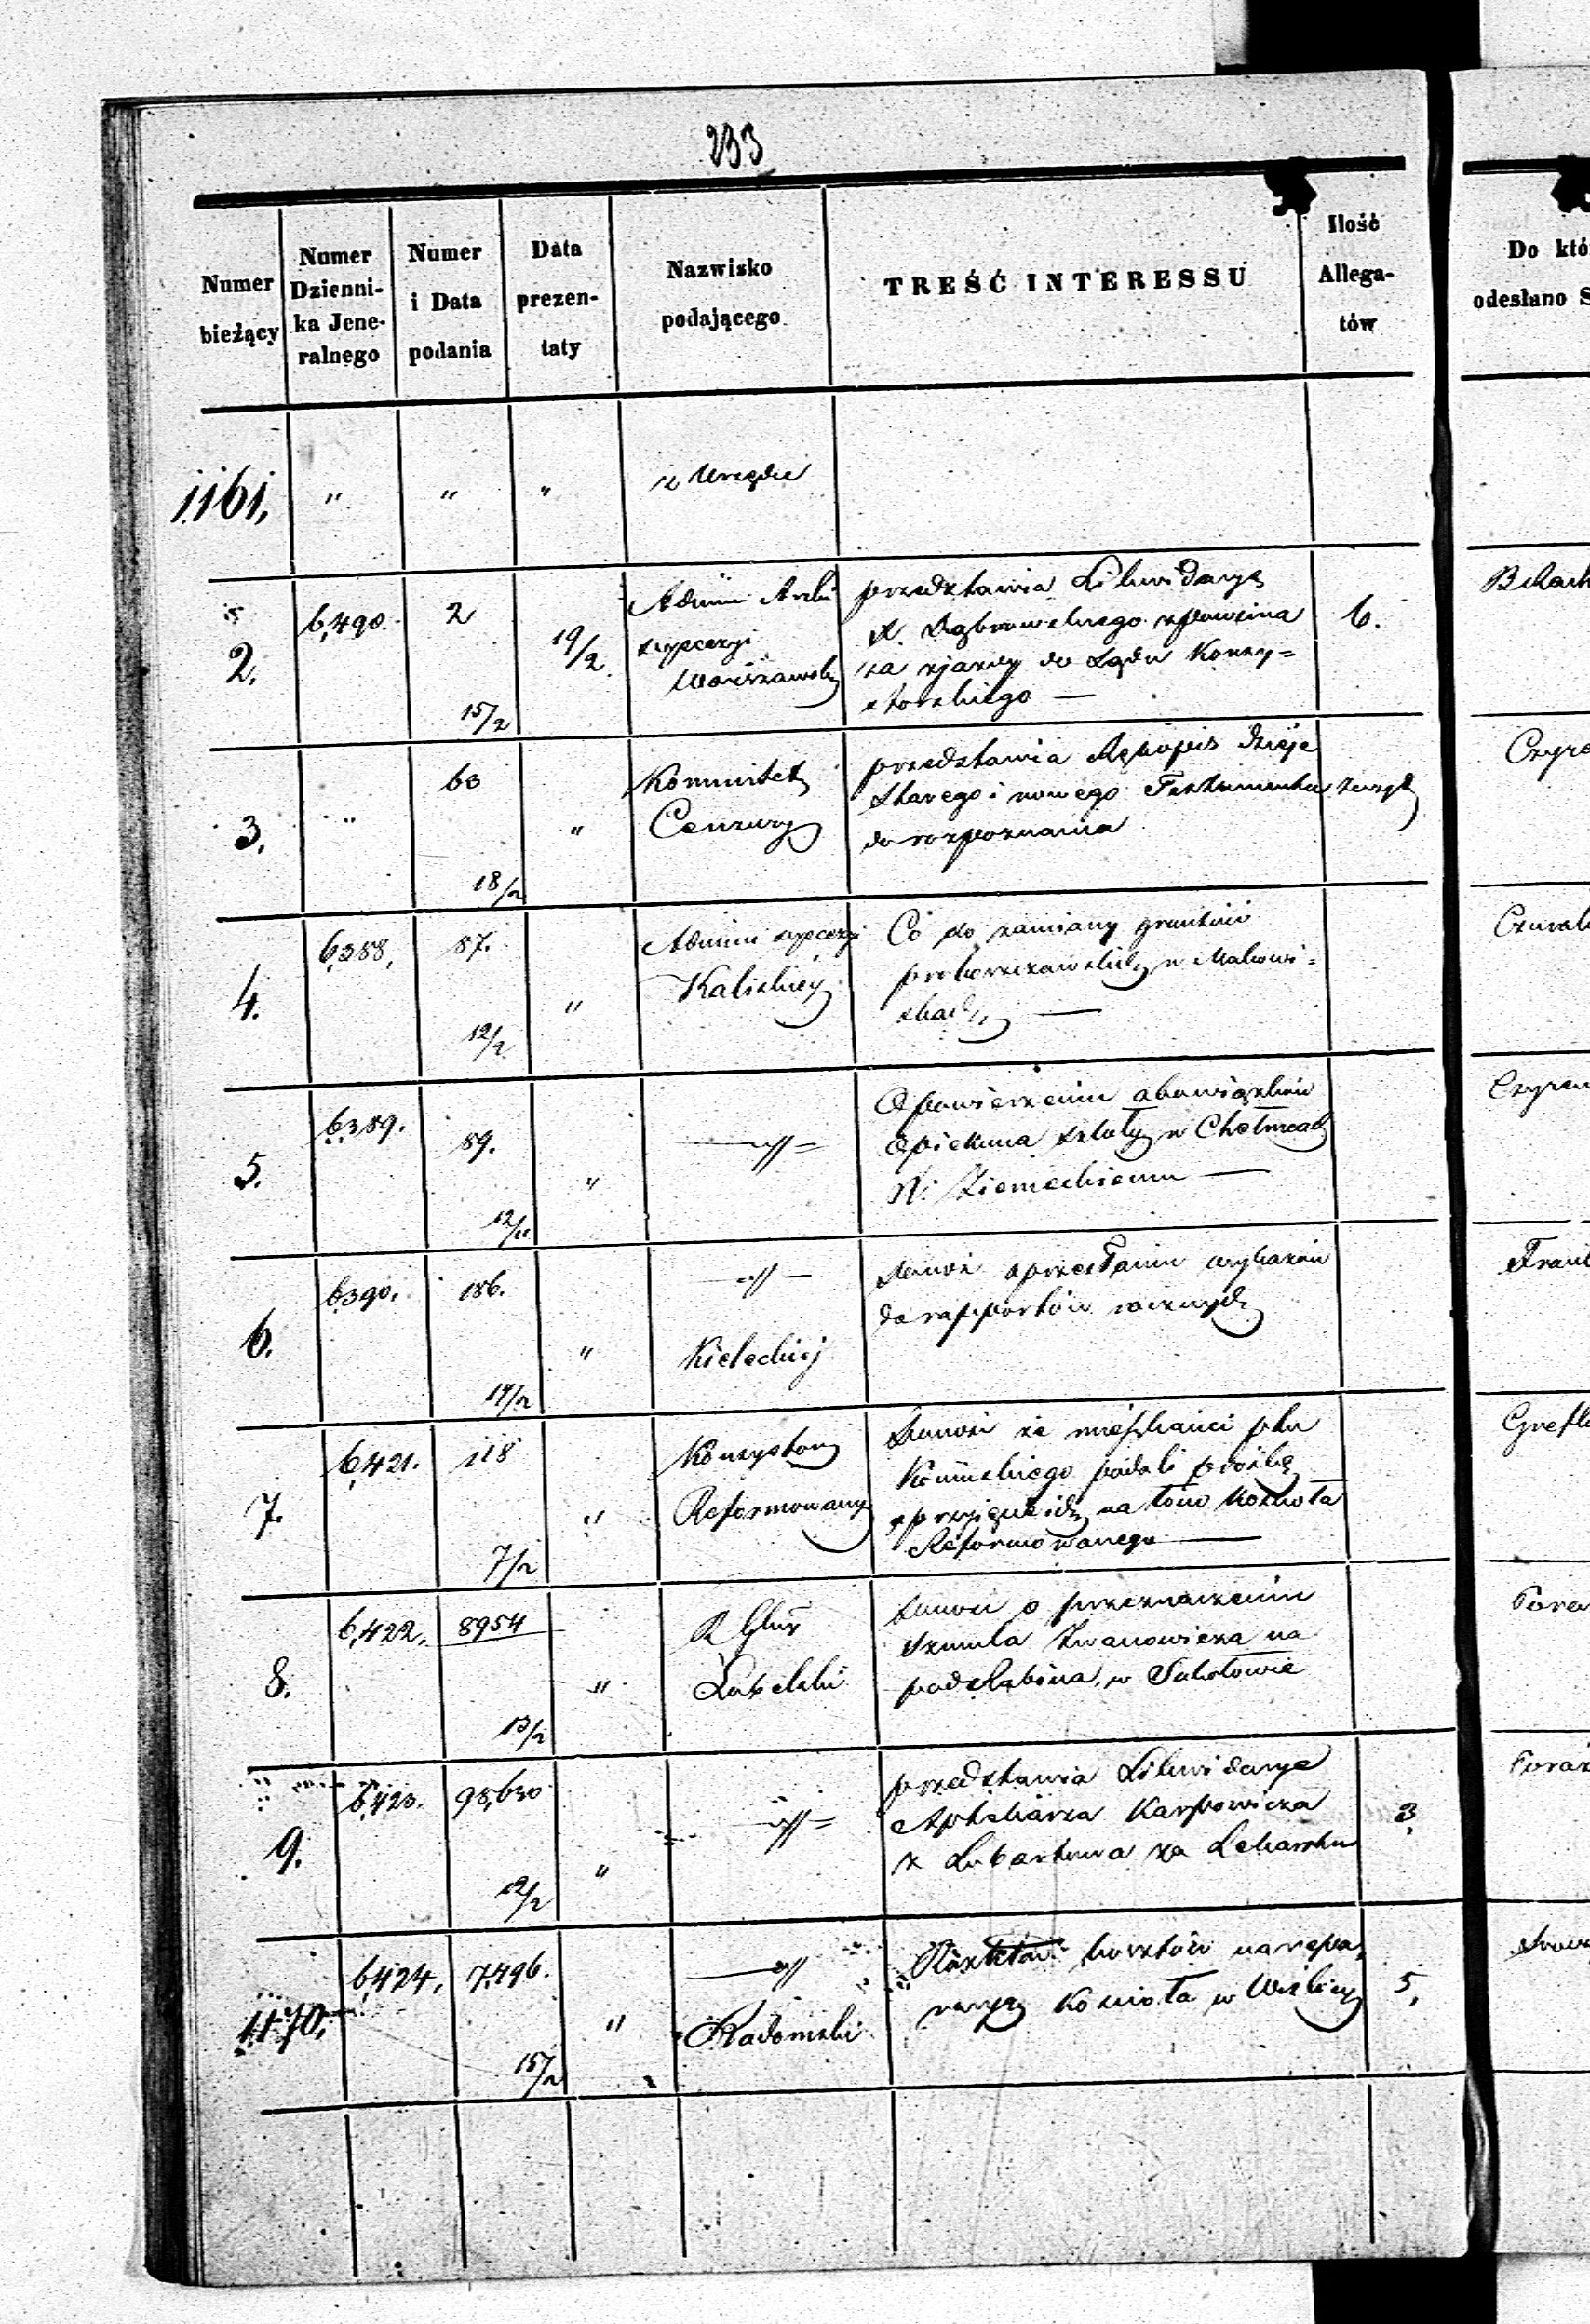 233
Numer bieżący
Numer Dzienni-ka Jene-ralnego
Numer i Data podania
Data prezen-taty
Nazwisko podającego
TREŚĆ INTERESSU
Ilość Allega-tów
Do któ
odesłano S
1161, " " " z Urzędu
2. 6,490. 2 15/2 19/2
Admin Archi
dyecezyi
Warszawsk
przedstawia Likwidacyę
X. Dąbrowskiego
za zjazdy do Sądu Konsy=
storskiego —
6.
3. " 63 18/2 "
Kommitet
Cenzury
przedstawia Rękopis dzieje
Starego i nowego Testamentu
do rozpoznania
zeszyt
4. 6,388, 87. 12/2 "
Admin dyecezyi
Kaliskiey
Co do zamiany gruntów
proboszczowskich w Makowi=
skach —
5. 6389. 89. 12/2 "
—"—
O powierzeniu obowiązków
Opiekuna szkoły w Chełmcach
N. Ziemeckiemu —
6. 6390. 186. 14/2 "
—"—
Kieleckiej
donosi o przesłaniu wykazów
do rapportów rocznych
7. 6,421. 118 7/2 "
Konsystorz
Reformowany
donosi że mieszkańci ptu
Konińskiego podali prośbę
o przyjęcie ich na łono Kościoła
Reformowanego —
8. 6,422. 8954 13/2 "
R Gbn
Lubelski
donosi o przeznaczeniu
Szmula Zwanowicza na
podrabina, w Sokołowie
9. 6,423. 98,630 12/2 "
—"—
przedstawia Likwidacye
Aptekarza Karpowicza
z Lubartowa za Lekarstw
3,
1170, 6,424, 7,496. 15/2 "
—"—
Radomski
kosztów na repa,
racyę Kościoła w Wiślicy
5,